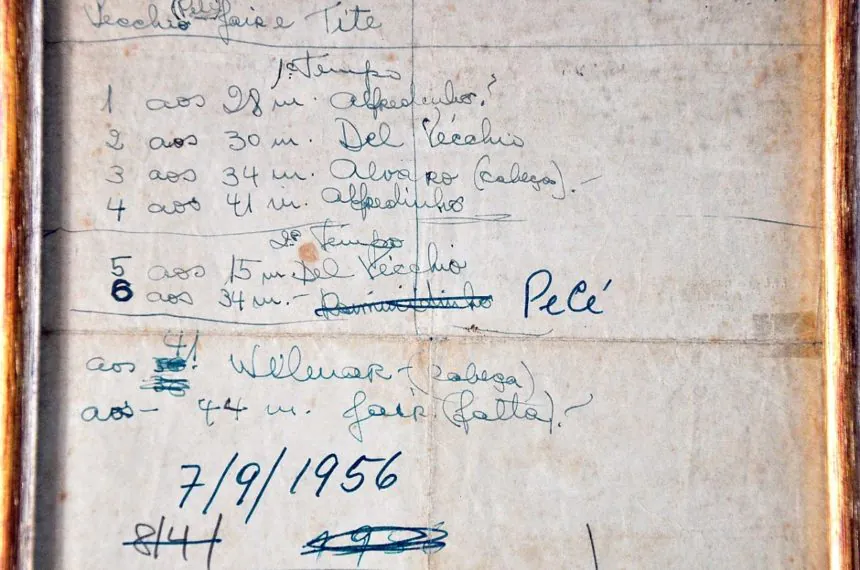 Vecchio (Pelé) Jair e Tite
1º Tempo
1 aos 28 m. Alfredinho.
2 aos 30 m. Del Vecchio
3 aos 34 m. Alvaro (cabeça).-
4 aos 41 m. Alfredinho
2º Tempo
5 aos 15 m. Del Vecchio
6 aos 34 m.- Raimundinho PeLé
aos 41! Wilmar - (cabeça)
aos - 44 m. Jair (falta).-
7/9/1956
8/4/